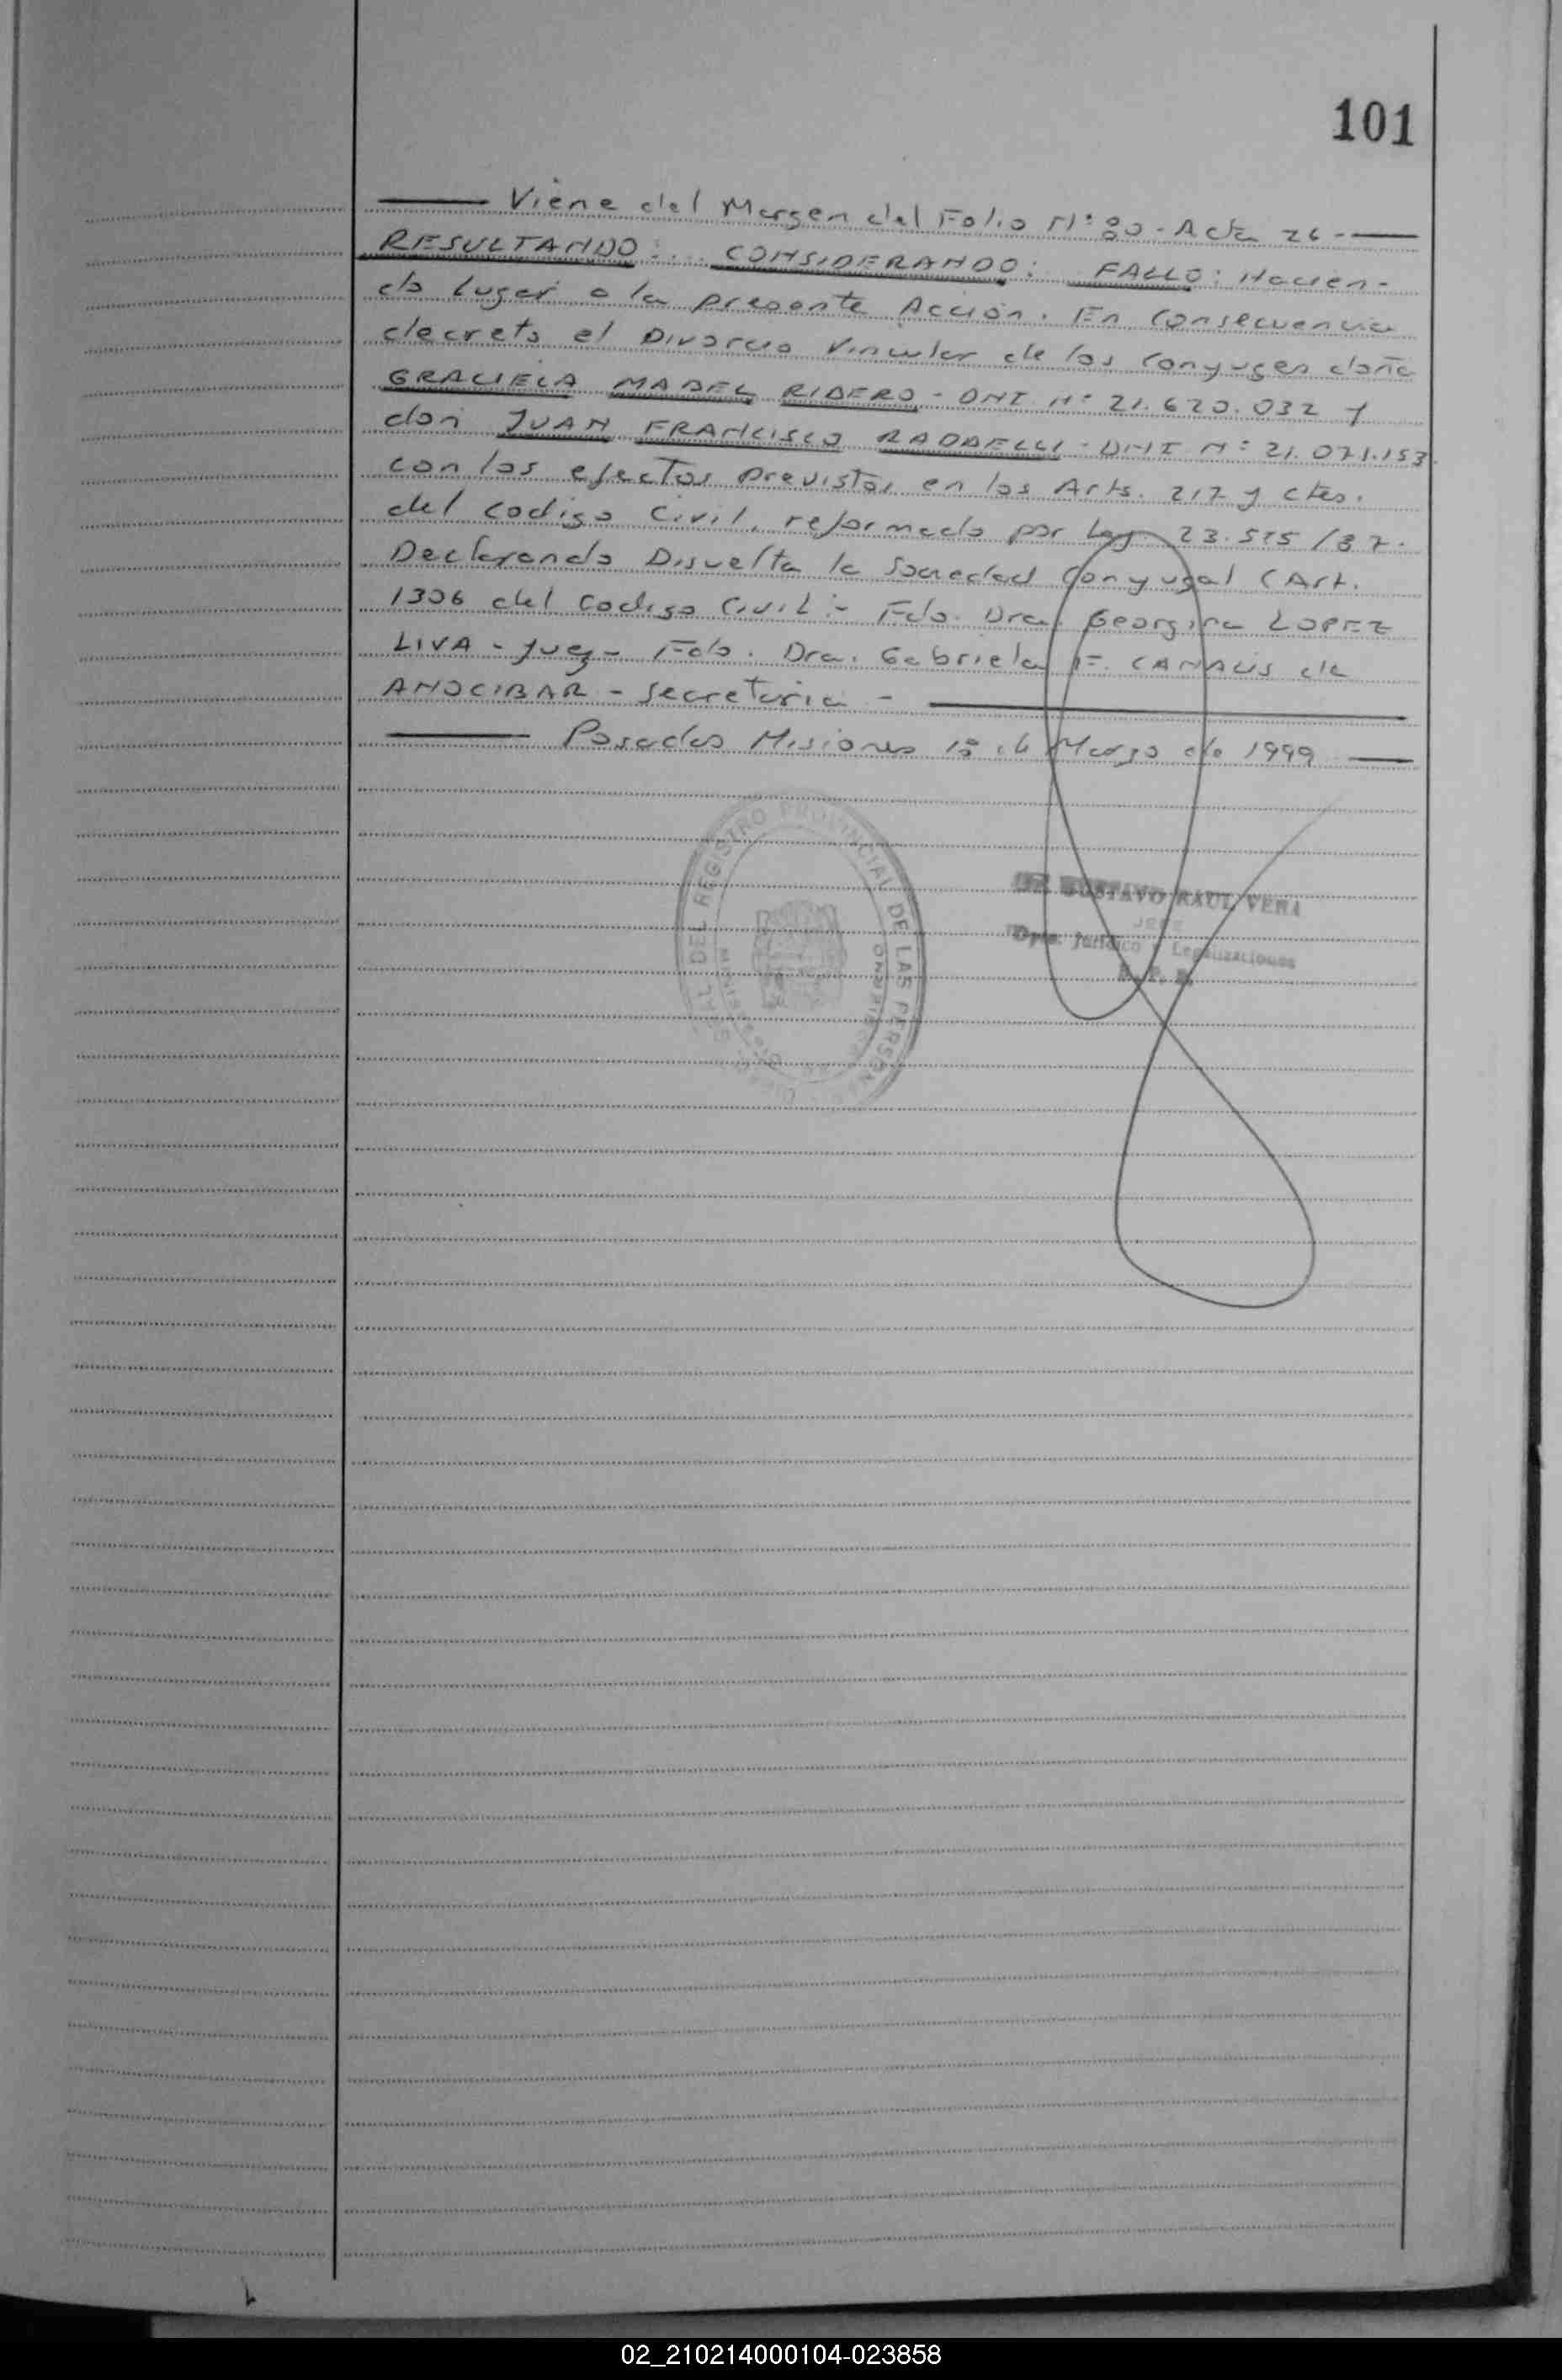 101
Viene del Margen del Folio N° 80 - Acta 26 -
RESULTANDO:... CONSIDERANDO: FALLO: Hacien-
do lugar a la presente Acción. En consecuencia
decreto el Divorcio Vincular de los conyuges doña
GRACIELA MABEL RIBERO - DNI N° 21.620.032 y
don JUAN FRANCISCO RADDELLI - DNI N° 21.071.153
con los efectos previstos en los Arts. 217 y ctes.
del codigo Civil, reformado por Ley 23.515/87.
Declarando Disuelta la Sociedad Conyugal (Art.
1306 del Codigo Civil:- Fdo. Dra. Georgina LOPEZ
LIVA - Juez - Fdo. Dra. Gabriela F. CANALIS de
ANOCIBAR - Secretaria -
Posadas Misiones de Marzo de 1999
GUSTAVO RAUL VERA
JEFE
Dpto. Jurídico y Legalizaciones
DEL REGISTRO PROVINCIAL DE LAS PERSONAS
MINISTERIO DE GOBIERNO
02_210214000104-023858